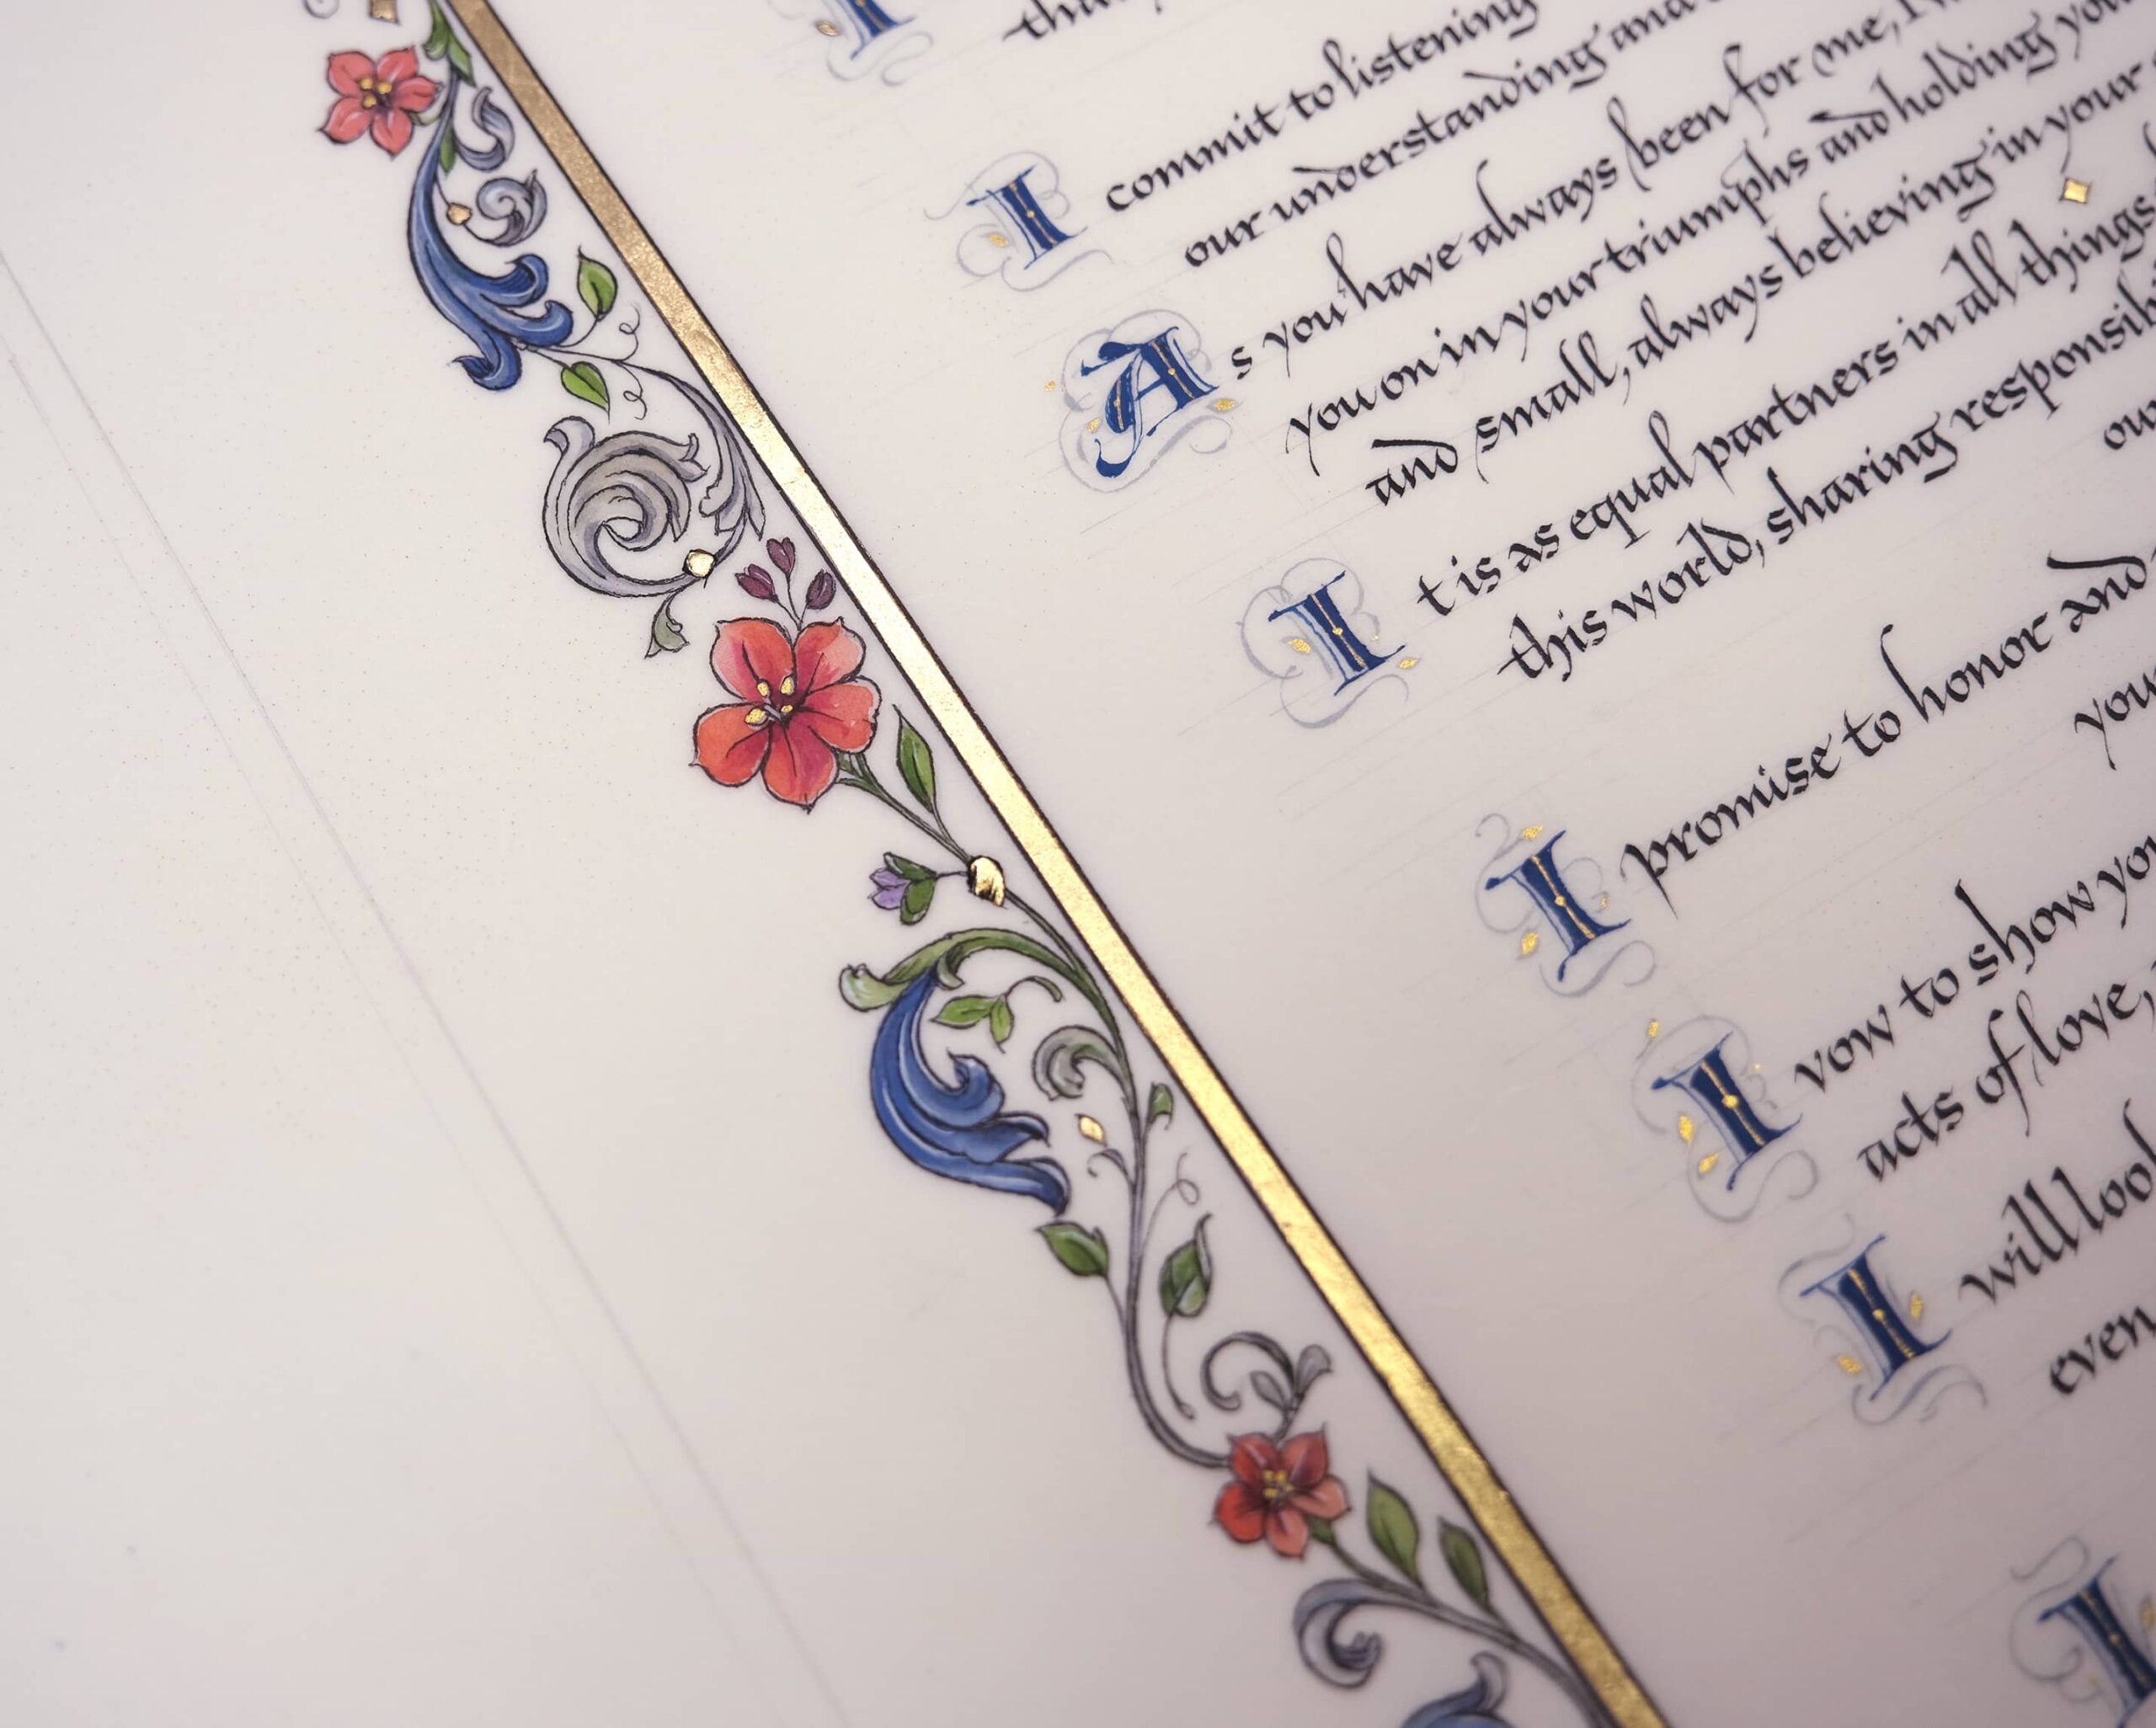 I
tha
I commit to listening
our understanding and
As you have always been for me, I
you on in your triumphs and holding you
and small, always believing in your
It is as equal partners in all things
this world, sharing responsib
ou
I promise to honor and
you
I vow to show yo
acts of love,
I will loo
even
I